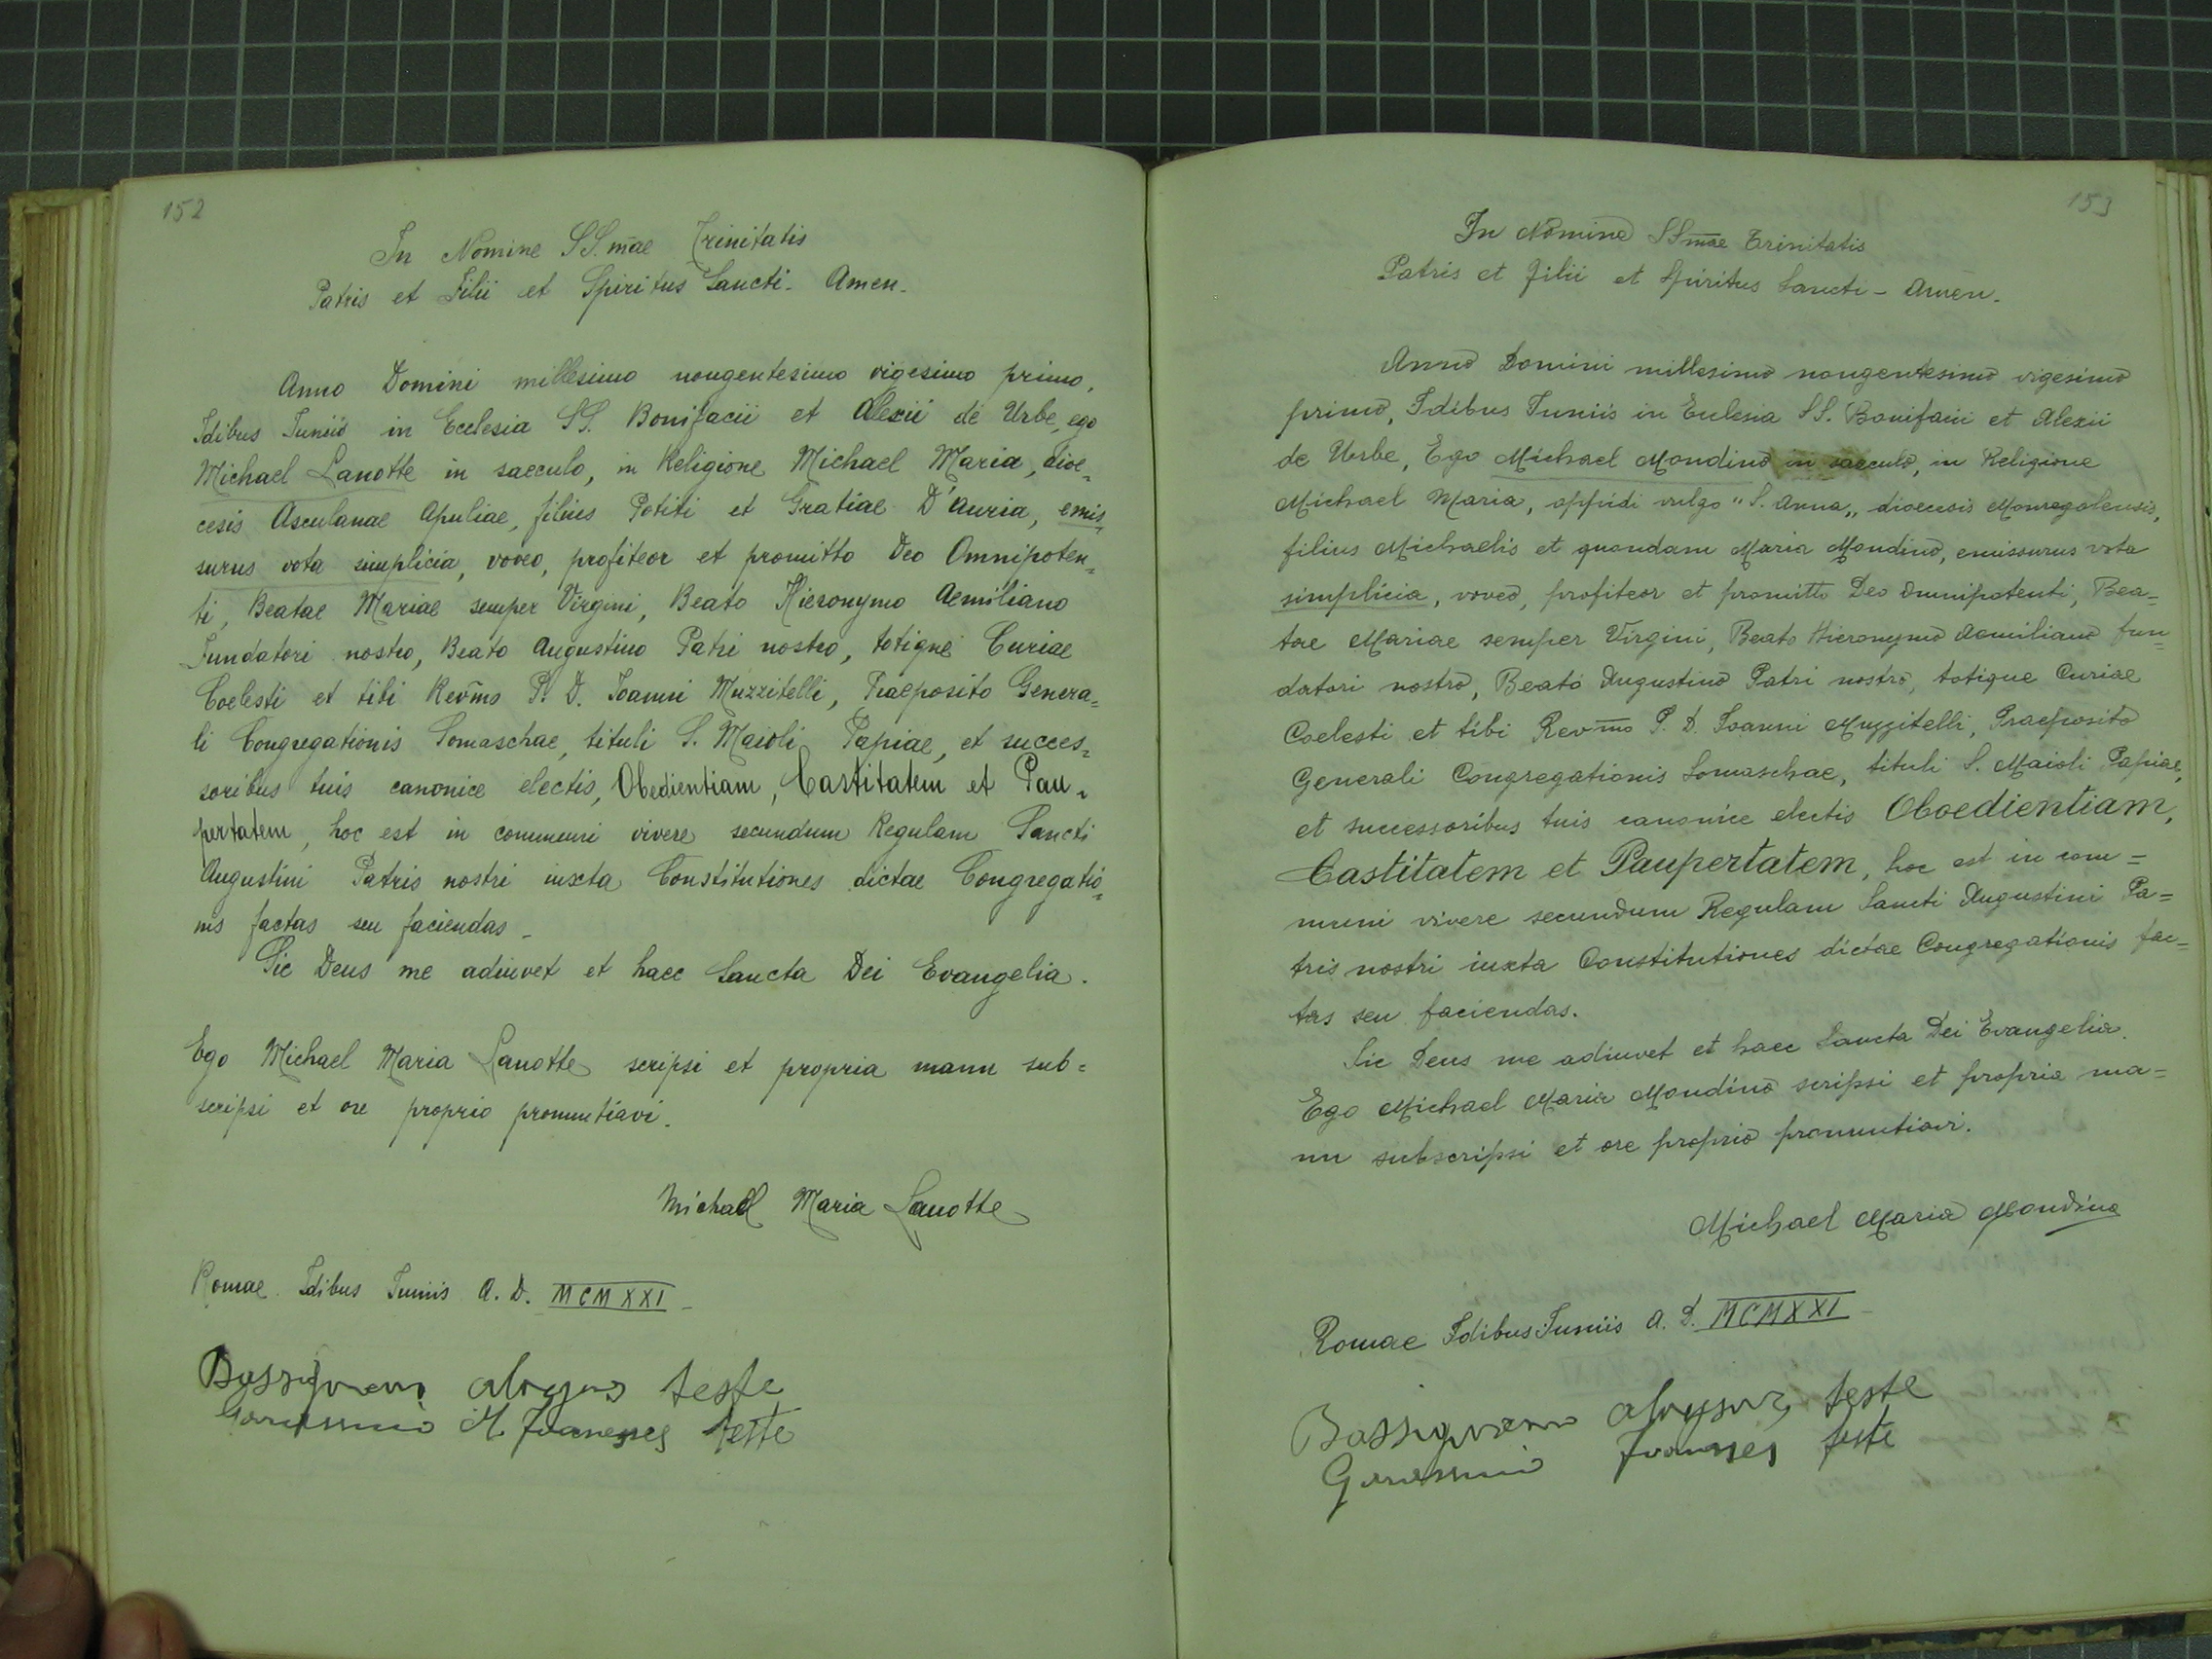 152
In Nomine SS.mae Trinitatis
Patris et Filii et Spiritus Sancti - Amen -
Anno Domini millesimo nongentesimo vigesimo primo,
Idibus Juniis in Ecclesia SS. Bonifacii et Alexii de Urbe, ego
Michael Lanotte in saeculo, in Religione Michael Maria, dioe=
cesis Asculanae Apuliae, filius Potiti et Gratiae D'Auria, emis=
surus vota simplicia, voveo, profiteor et promitto Deo Omnipoten=
ti, Beatae Mariae semper Virgini, Beato Hieronymo Aemiliano
Fundatori nostro, Beato Augustino Patri nostro, totique Curiae
Coelesti et tibi Rev̄mo P. D. Joanni Muzzitelli, Praeposito Genera=
li Congregationis Somaschae, tituli S. Maioli Papiae, et succes=
soribus tuis canonice electis, Obedientiam, Castitatem et Pau=
pertatem, hoc est in communi vivere secundum Regulam Sancti
Augustini Patris nostri iuxta Constitutiones dictae Congregatio=
nis factas seu faciendas -
Sic Deus me adiuvet et haec Sancta Dei Evangelia.
Ego Michael Maria Lanotte scripsi et propria manu sub=
scripsi et ore proprio pronuntiavi.
Michael Maria Lanotte
Romae Idibus Juniis A. D. MCMXXI -
teste
M. Joannes teste
153
In Nomine SSmae Trinitatis
Patris et Filii et Spiritus Sancti - Amen.
Anno Domini millesimo nongentesimo vigesimo
primo, Idibus Juniis in Ecclesia SS. Bonifacii et Alexii
de Urbe, Ego Michael Mondino in saeculo, in Religione
Michael Maria, oppidi vulgo "S. Anna„ dioecesis Monregalensis,
filius Michaelis et quondam Maria Mondino, emissurus vota
simplicia, voveo, profiteor et promitto Deo Omnipotenti, Bea=
tae Mariae semper Virgini, Beato Hieronymo Aemiliano fun=
datori nostro, Beato Augustino Patri nostro, totique Curiae
Coelesti et tibi Rev̄mo P. D. Joanni Muzzitelli, Praeposito
Generali Congregationis Somaschae, tituli S. Maioli Papiae,
et successoribus tuis canonice electis Oboedientiam,
Castitatem et Paupertatem, hoc est in com=
muni vivere secundum Regulam Sancti Augustini Pa=
tris nostri iuxta Constitutiones dictae Congregationis fac=
tas seu faciendas.
Sic Deus me adiuvet et haec Sancta Dei Evangelia.
Ego Michael Maria Mondino scripsi et propria ma=
nu subscripsi et ore proprio pronuntiavi.
Michael Maria Mondino
Romae Idibus Juniis A. D. MCMXXI -
teste
Joannes teste